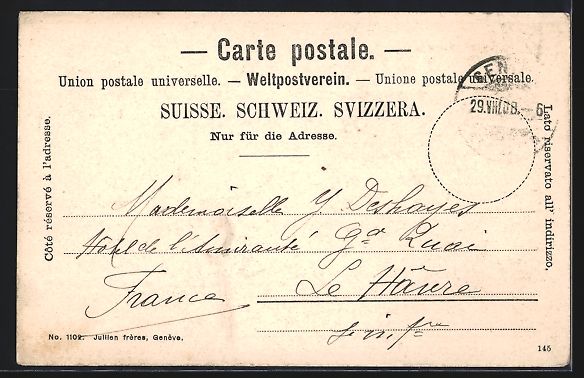 — Carte postale. —
Union postale universelle. — Weltpostverein. — Unione postale universale.
SUISSE. SCHWEIZ. SVIZZERA.
Nur für die Adresse.
Côté réservé à l'adresse.
Lato riservato all' indirizzo.
GEN
29.VII.08.–6
Mademoiselle Y Deshayes
Hotel de l'Amirauté Gd Quai
Le Hâvre
France
No. 1102. Jullien frères, Genève.
145